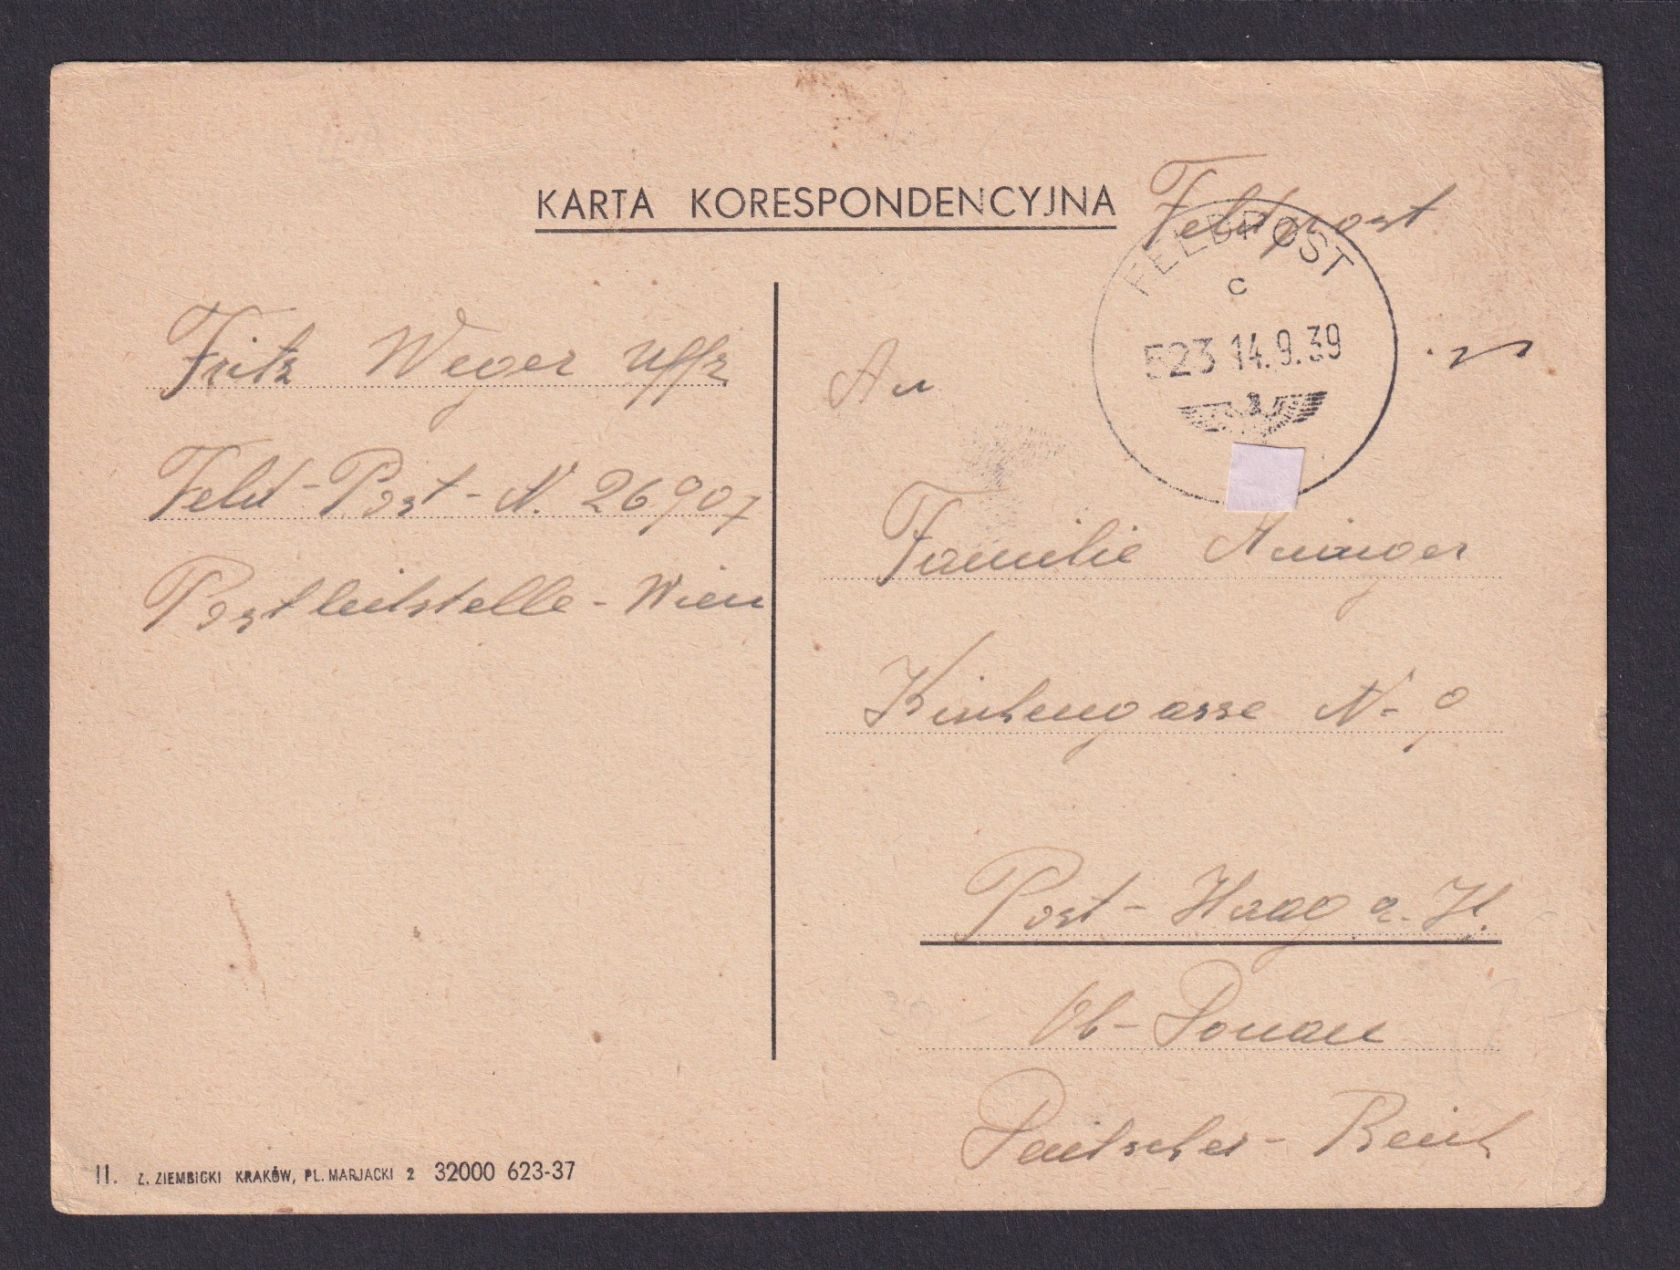 KARTA KORESPONDENCYJNA
Feldpost
FELDPOST
c
523 14.9.39
Fritz Weger Uffz
Feld-Post-N. 26907
Postleitstelle-Wien
An
Familie
Kirchengasse N- 9
Post-Haag a. H.
Ob-Donau
Deutsches-Reich
II. Z. ZIEMBICKI KRAKÓW, PL. MARJACKI 2 32000 623-37